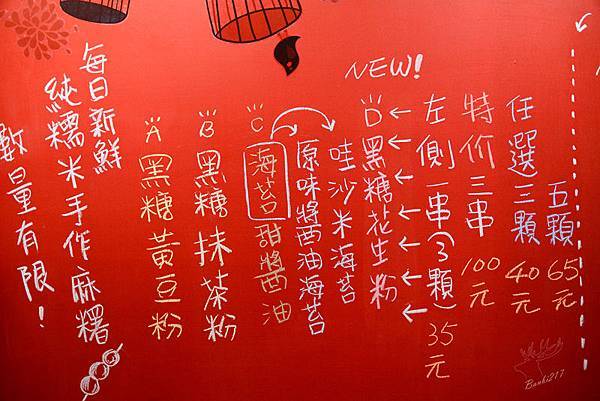 五顆 65元
任選三顆 40元
特价三串 100元
左側一串(3顆)35元
NEW!
D 黑糖花生粉
哇沙米海苔
原味醬油海苔
C 海苔甜醬油
B 黑糖抹茶粉
A 黑糖黃豆粉
每日新鮮
純糯米手作麻糬
數量有限！
Banki217